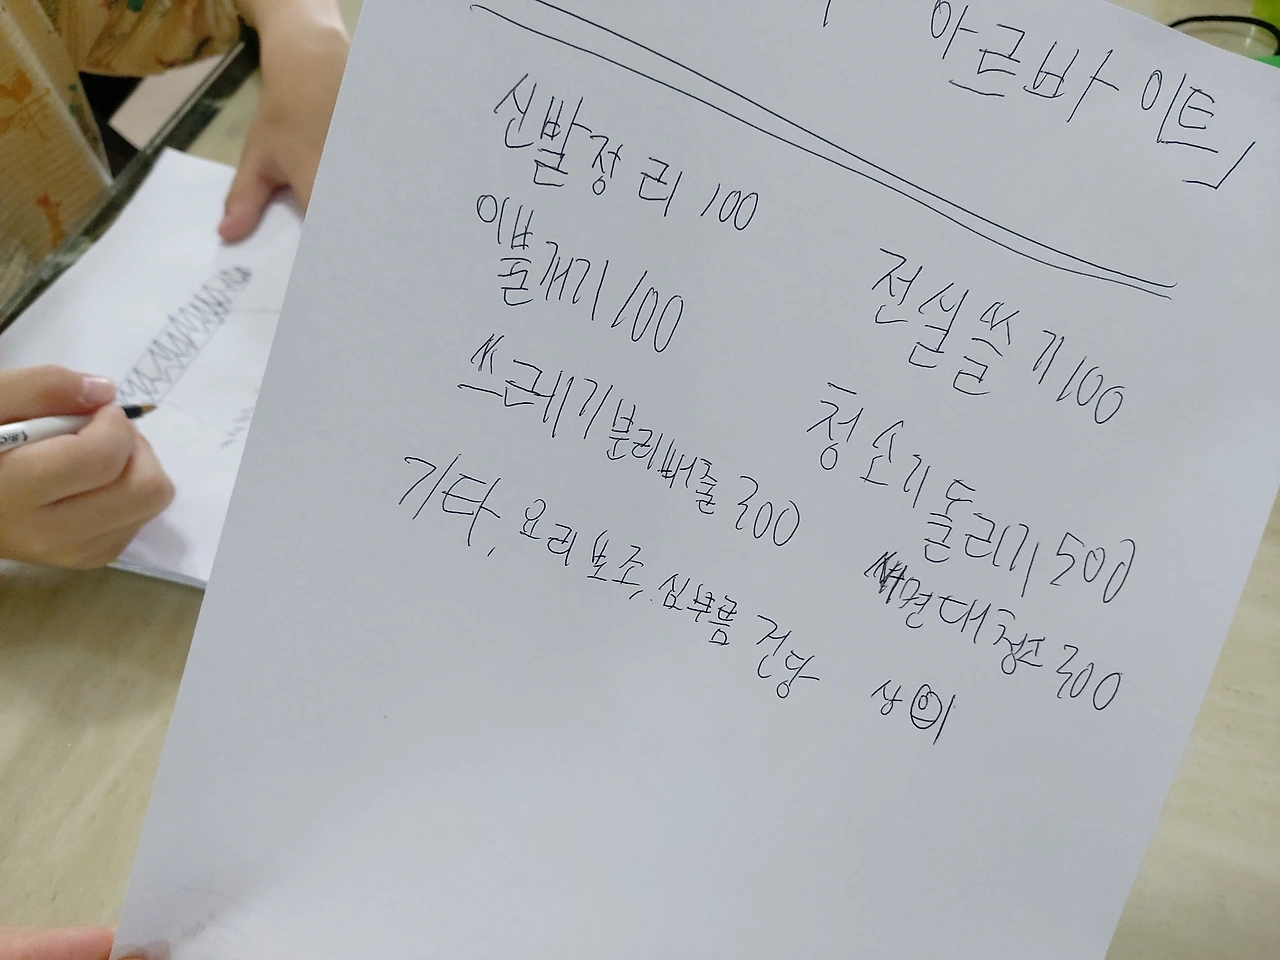 아르바이트
신발정리 100
이불개기 100
전실쓸기 100
쓰레기분리배출 300
청소기돌리기 500
세면대청소 300
기타, 요리보조, 심부름 건당 상이